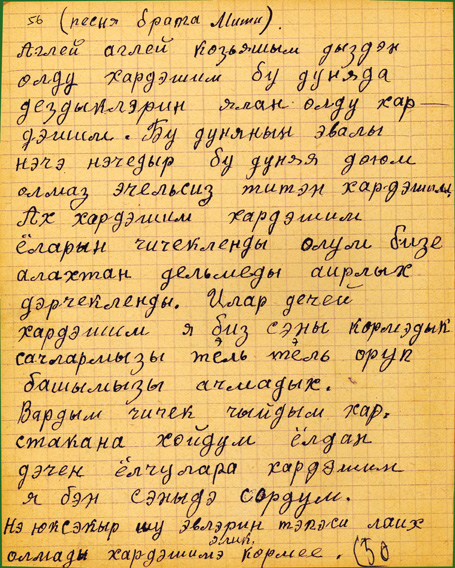 56 (песня брата Мити).
Аглей аглей козьяшым дыздэн
олду хардэшим бу дуняда
дездыклэрин ялан олду хар-
дэшим. Бу дуняның эвалы
нэчэ нэчедыр бу дуняя доюм
олмаз эчельсиз титэн хардэшим,
Ах хардэшим хардэшим
ёларын чичекленды олум бизе
алахтан дельмеды аирлых
дэрчекленды. Илар дечей
хардэшим я биз сэны кормэдык
сачлармызы тель тель оруп
башымызы ачмадых.
Вардым чичек чыйдым хар,
стакана хойдум ёлдан
дэчен ёлчулара хардэшим
я бэн сэныдэ сордум.
Нэ юксэкыр шу эвлэрин тэпэси лаих
олмады хардэшимэ элик, кормее. (50